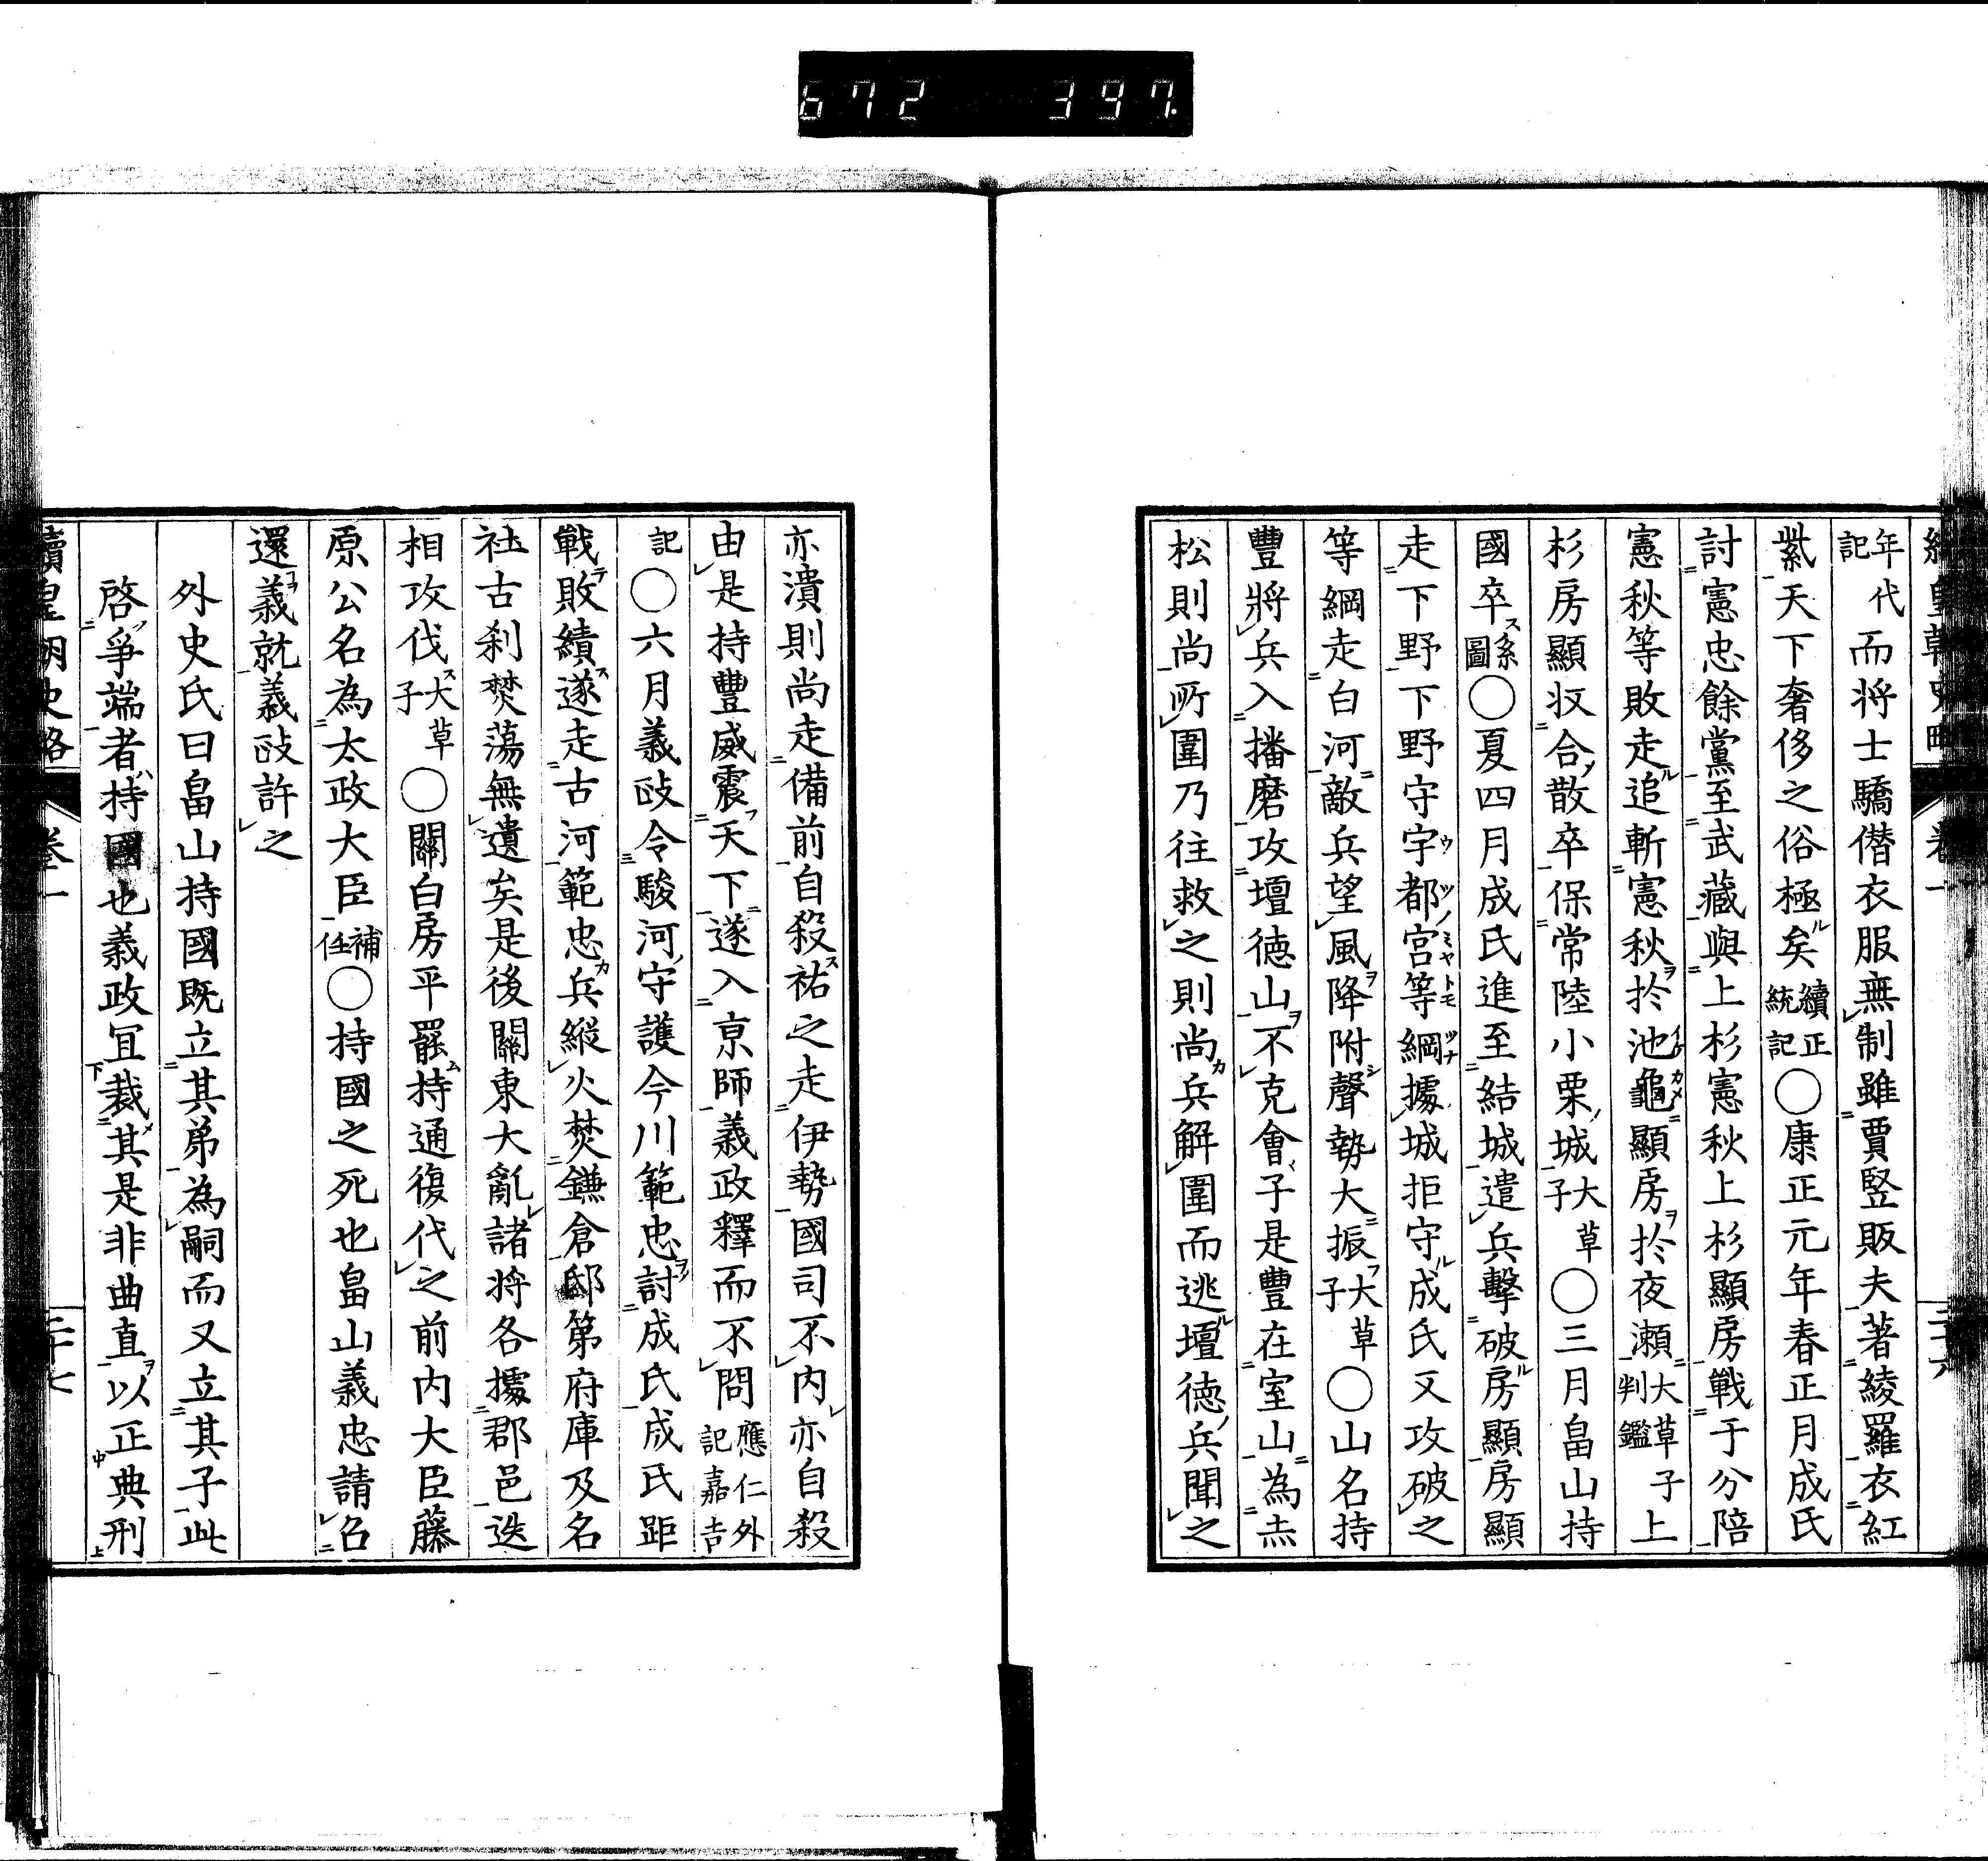 672 397.
續皇朝史略 卷一 二十六
年代記而将士驕僭衣服無制雖賈竪販夫著綾羅衣紅
紫天下奢侈之俗極矣續正統記〇康正元年春正月成氏
討憲忠餘黨至武藏與上杉憲秋上杉顯房戰于分陪
憲秋等敗走追斬憲秋於池龜顯房於夜瀬大草子上判鑑
杉房顯収合散卒保常陸小栗城大草子〇三月畠山持
國卒系圖〇夏四月成氏進至結城遣兵擊破房顯房顯
走下野下野守宇都宮等綱據城拒守成氏又攻破之
等綱走白河敵兵望風降附聲勢大振大草子〇山名持
豐將兵入播磨攻壇德山不克會子是豐在室山為赤
松則尚所圍乃往救之則尚兵解圍而逃壇德兵聞之
亦潰則尚走備前自殺祐之走伊勢國司不内亦自殺
由是持豐威震天下遂入京師義政釋而不問應仁外記嘉吉
記〇六月義政令駿河守護今川範忠討成氏成氏距
戰敗績遂走古河範忠兵縱火焚鎌倉邸第府庫及名
社古刹焚蕩無遺矣是後關東大亂諸将各據郡邑迭
相攻伐大草子〇關白房平罷持通復代之前内大臣藤
原公名為太政大臣補任〇持國之死也畠山義忠請召
還義就義政許之
外史氏曰畠山持國既立其弟為嗣而又立其子此
啓爭端者持國也義政冝裁其是非曲直以正典刑
續皇朝史略 卷一 二十七